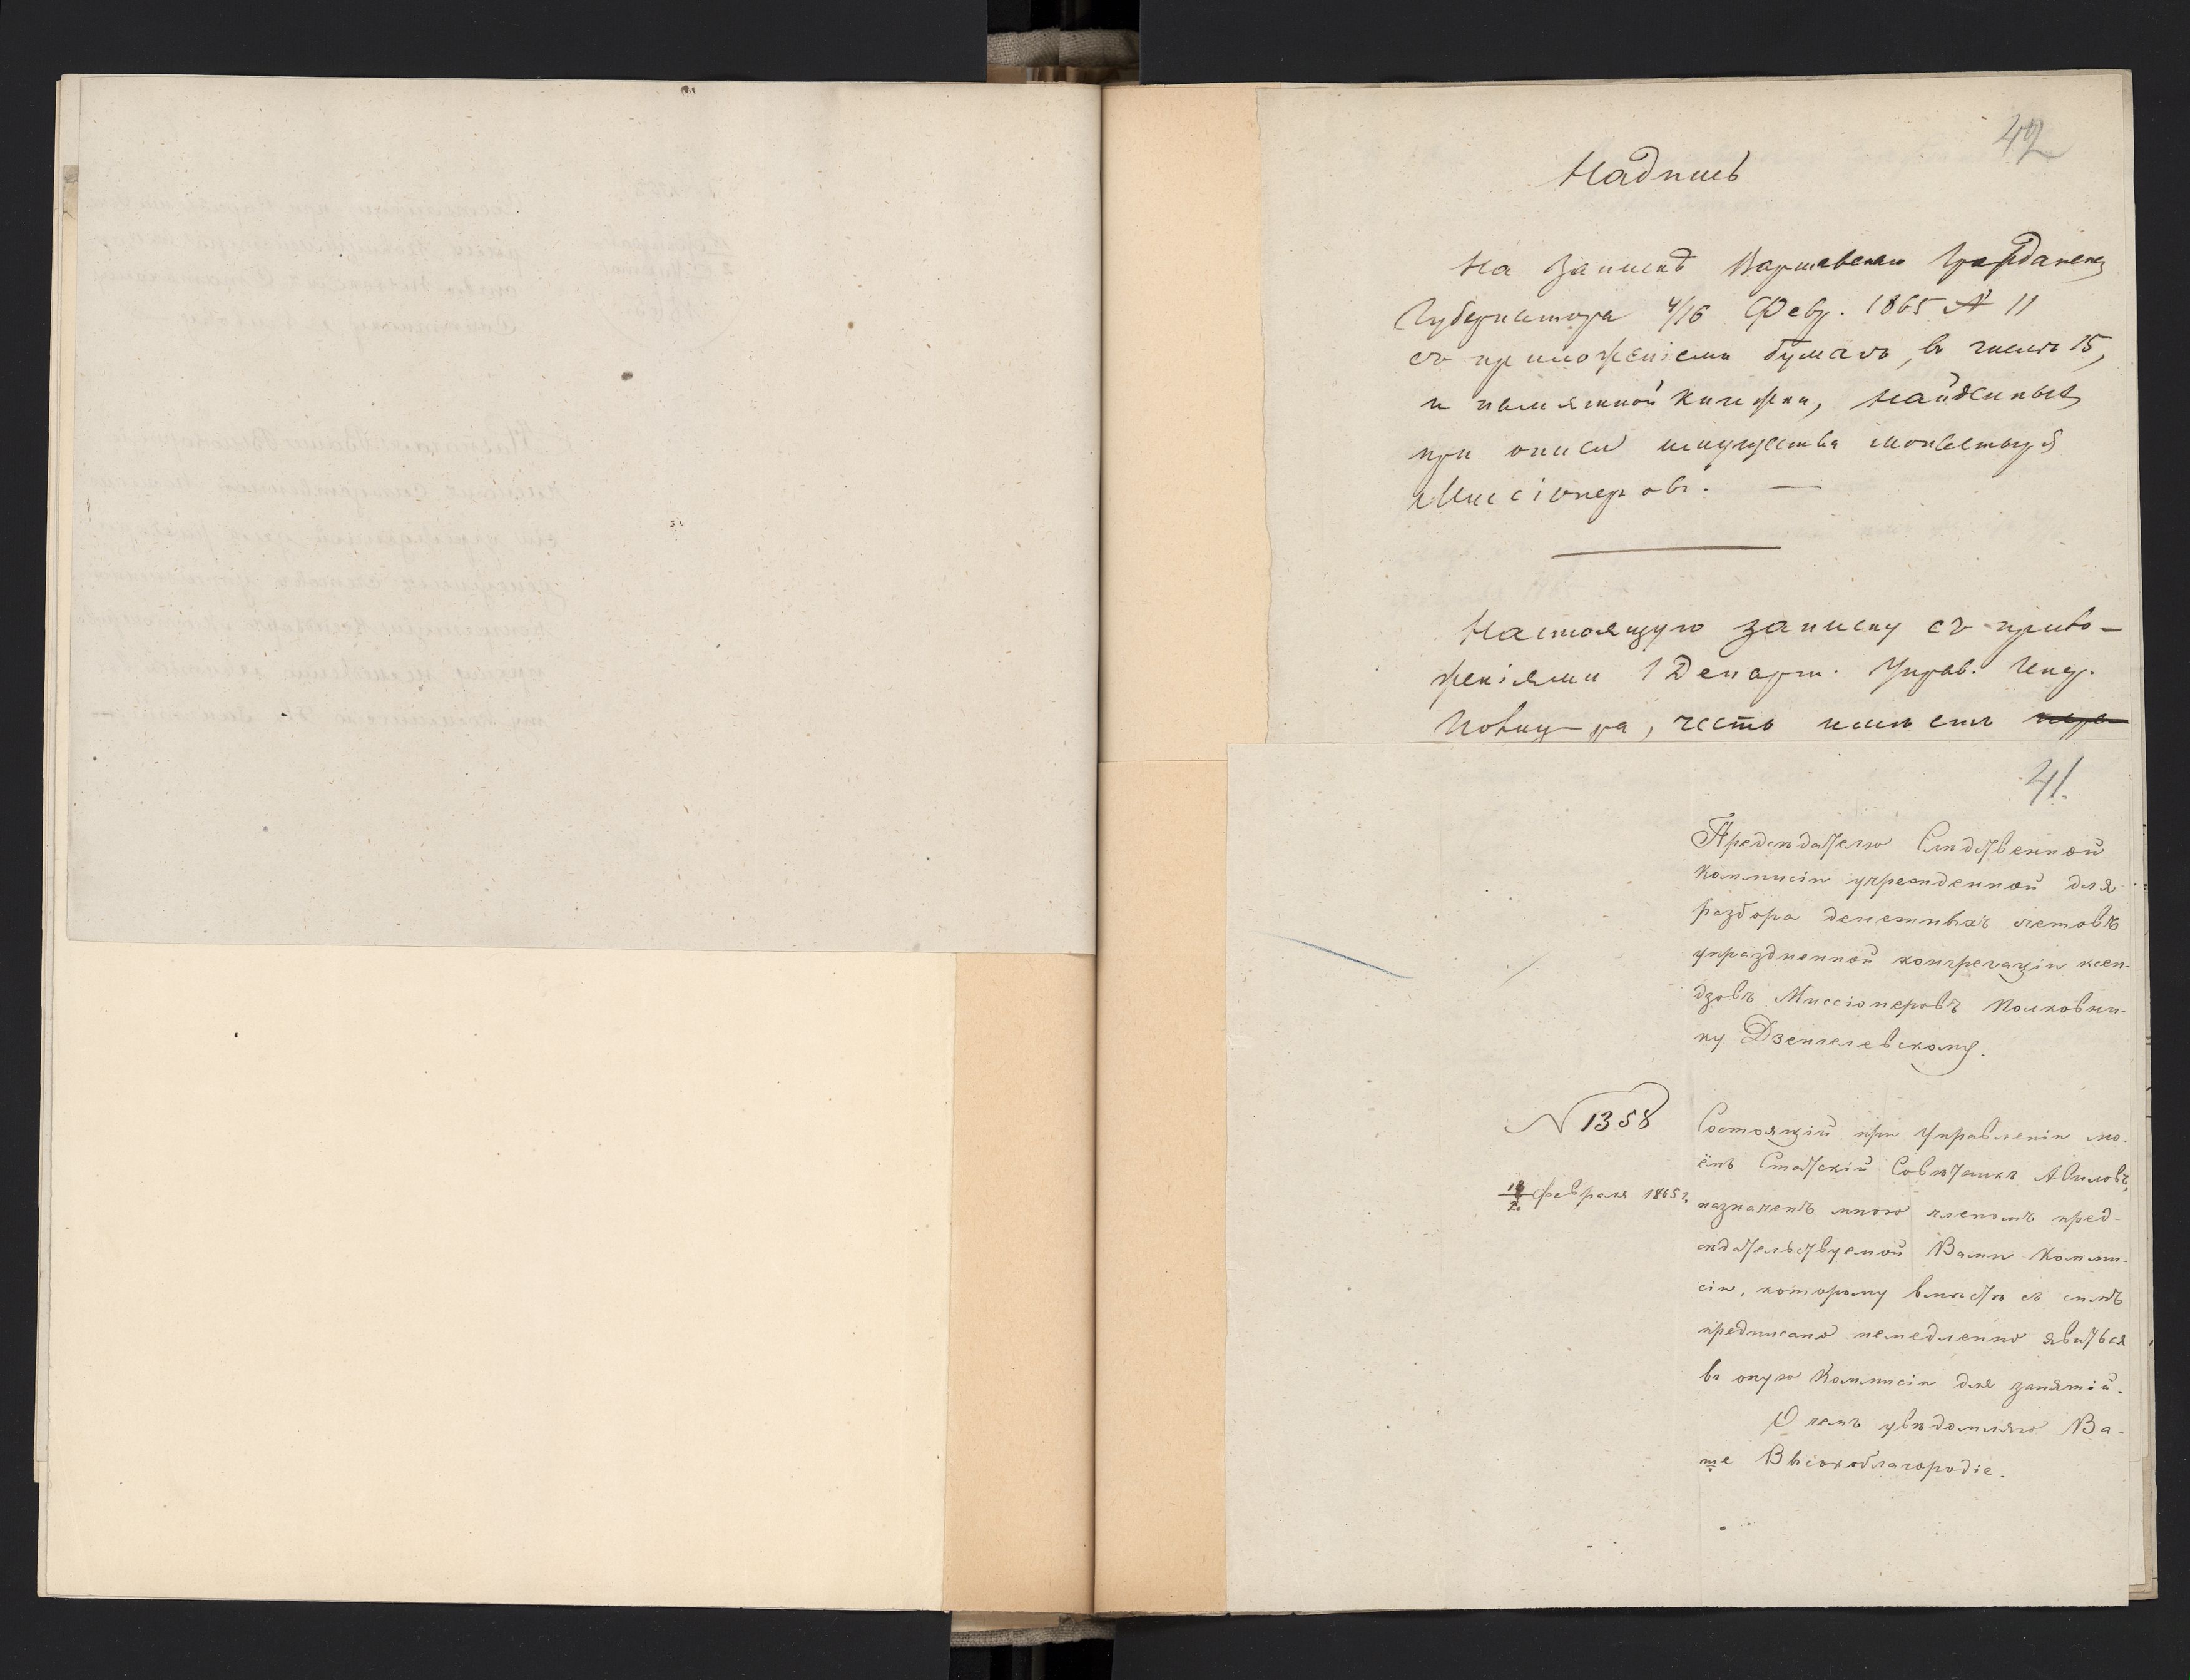 42
Надпись
На запискѣ Варшавскаго Гражданск
Губернатора 4/16 Февр. 1865 № 11
съ приложеніемъ бумагъ, въ числѣ 15,
и памятной книжки, найденныхъ
при описи имущества монастыря
Миссіонеровъ. —
Настоящую записку съ прило-
женіями 1 Департ. Управ. Ген.
честь имѣетъ
41.
Предсѣдателю Слѣдственной
Коммисіи учрежденной для
разбора денежныхъ счетовъ
упраздненной конгрегаціи ксен-
дзовъ Миссіонеровъ Полковни-
ку Дзенгелевскому.
N 1358
Февраля 1865 г.
Состоящій при Управленіи мо-
ёмъ Статскій Совѣтникъ Авиловъ,
назначенъ мною членомъ пред-
сѣдательствуемой Вами Комми-
сіи, которому вмѣстѣ съ симъ
предписано немедленно явиться
въ оную Коммисію для занятій.
О чемъ увѣдомляю Ва-
ше Высокоблагородіе.